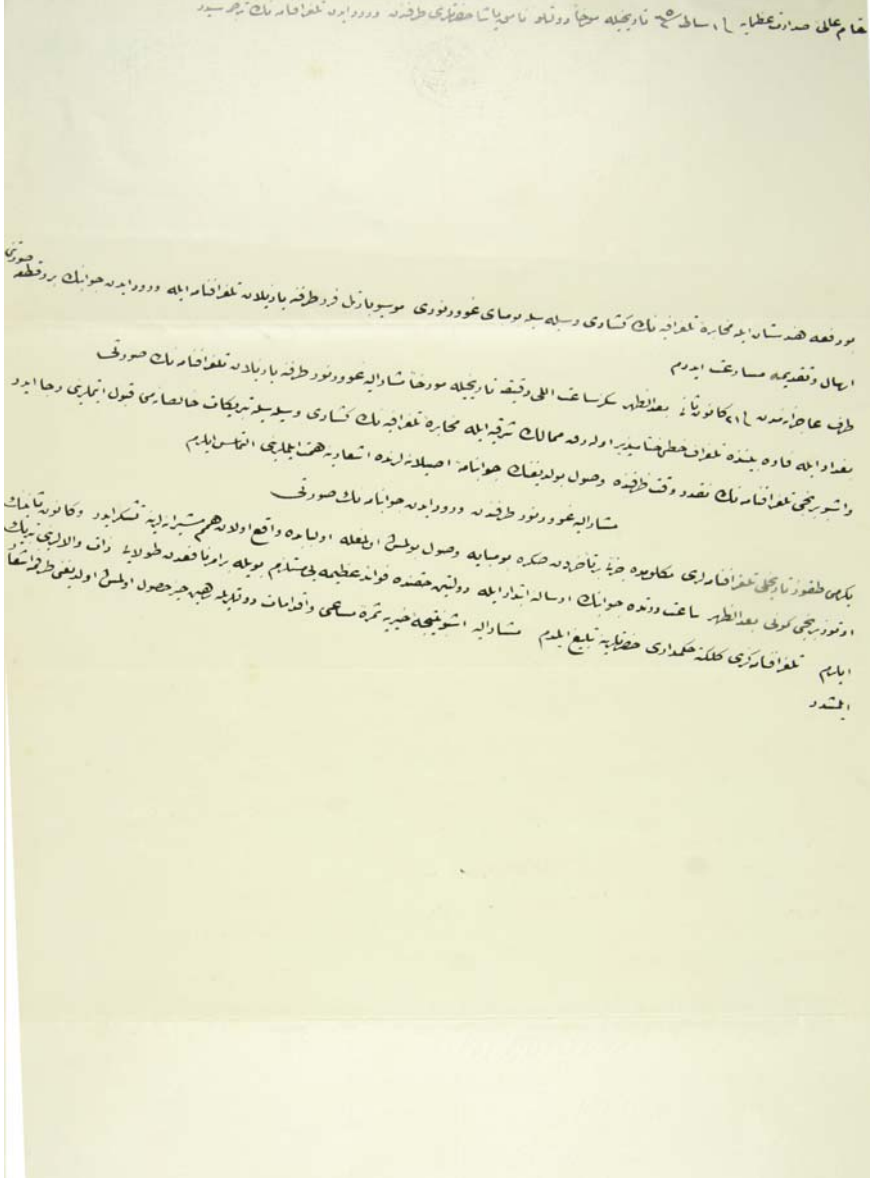 مقام عالئ صدارت عظمایه فی ١ شباط سنه تاریخیله مورخاً دولتلو نامق پاشا حضرتلری طرفندن ورود ایدن تلغرافنامه نك ترجمه سیدر
بو دفعه هندستان ایله مخابرهٔ تلغرافیه نك كشادی وسیله سیله بومبای غوورنوری موسیو بارتل فرر طرفنه یازیلان تلغرافنامه ایله ورود ایدن جوابك بررقطعه صورتی
ارسال وتقدیمه مسارعت ایدرم
طرف عاجزانه مدن فی ٢١ كانون ثانی بعدالظهر سكز ساعت اللی دقیقه تاریخیله مورخاً مشارالیه غوورنور طرفنه یازیلان تلغرافنامه نك صورتی
بغداد ایله فاوه بیننده تلغراف خطی ختامپذیر اولهرق ممالك شرقیه ایله مخابرهٔ تلغرافیه نك كشادی وسیله سیله تبریكات خالصانه می قبول ایتملری رجا ایدر
واشبو برنجی تلغرافنامه نك نقدر وقت ظرفنده وصول بولدیغنك جوابنامهٔ اصیلانه لرنده اشعارینه همت ایلملری التماس ایلرم
مشارالیه غوورنور طرفندن ورود ایدن جوابنامه نك صورتی
یكرمی طقوز تاریخلی تلغرافنامه لری صكره بومبایه وصول بولمش اولمغله اولبابده واقع اولان همم مشیرانه لرینه تشكر ایدر وكانون ثانینك
اوتوز برنجی كونی بعدالظهر ساعت دردده جوابنك ارسالنه ابتدار ایله دولتین حقنده فوائد عظیمه یی مستلزم بویله بر امر نافعدن طولایی ذات والالرینی تبریك
ایلرم تلغرافنامه لری كلكته حكمداری حضرتلرینه تبلیغ ایلدم مشارالیه اشبو نتیجهٔ خیریه ثمرهٔ مساعی واقدامات دولتلریله رهین حیز حصول اولمش اولدیغنی طرفمه اشعار
ایلمشدر